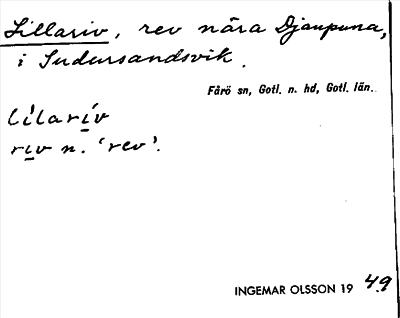 Lillariv, rev nära Djaupuna,
i Sudursandsvik.
Fårö sn, Gotl. n. hd, Gotl. län.
lilariv
riv n. ‘rev’.
INGEMAR OLSSON 19 49